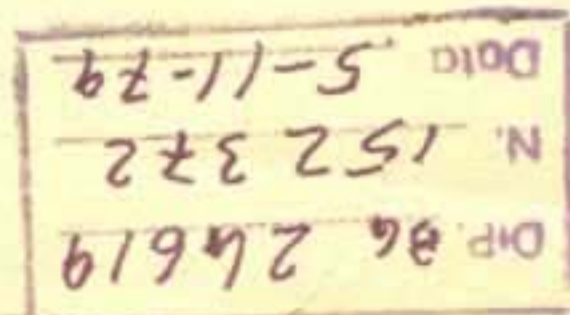 DIP. 24619
N. 152372
Data 5-11-79